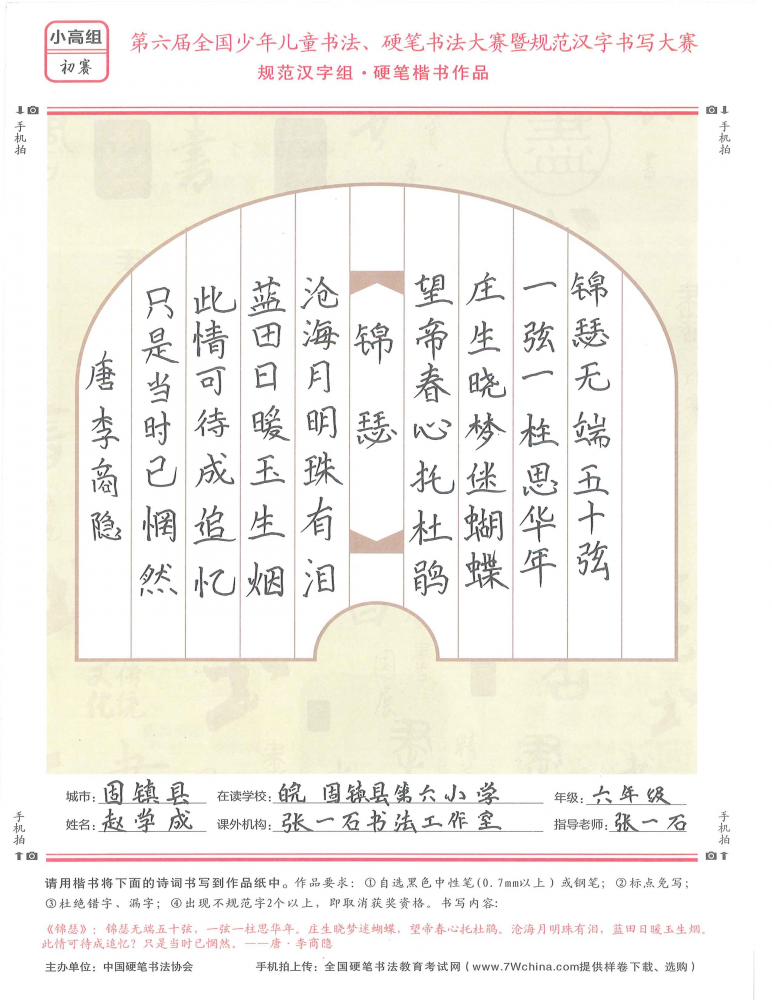 小高组
初赛
第六届全国少年儿童书法、硬笔书法大赛暨规范汉字书写大赛
规范汉字组·硬笔楷书作品
手机拍
手机拍
锦瑟无端五十弦
一弦一柱思华年
庄生晓梦迷蝴蝶
望帝春心托杜鹃
锦瑟
沧海月明珠有泪
蓝田日暖玉生烟
此情可待成追忆
只是当时已惘然
唐李商隐
城市：固镇县 在读学校：皖 固镇县第六小学 年级：六年级
姓名：赵学成 课外机构：张一石书法工作室 指导老师：张一石
手机拍
手机拍
请用楷书将下面的诗词书写到作品纸中。作品要求：①自选黑色中性笔(0.7mm以上)或钢笔；②标点免写；
③杜绝错字、漏字；④出现不规范字2个以上，即取消获奖资格。书写内容：
《锦瑟》：锦瑟无端五十弦，一弦一柱思华年。庄生晓梦迷蝴蝶，望帝春心托杜鹃。沧海月明珠有泪，蓝田日暖玉生烟。
此情可待成追忆？只是当时已惘然。——唐·李商隐
主办单位：中国硬笔书法协会 手机拍上传：全国硬笔书法教育考试网（www.7Wchina.com提供样卷下载、选购）